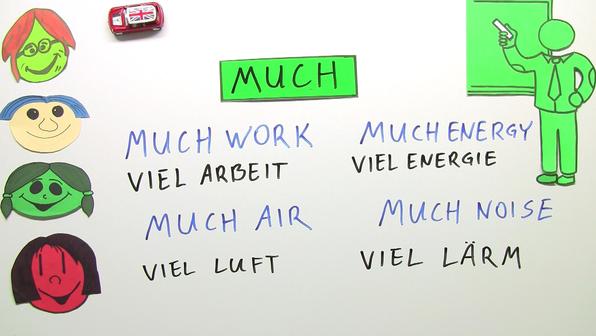 MUCH
MUCH WORK
VIEL ARBEIT
MUCH ENERGY
VIEL ENERGIE
MUCH AIR
VIEL LUFT
MUCH NOISE
VIEL LÄRM